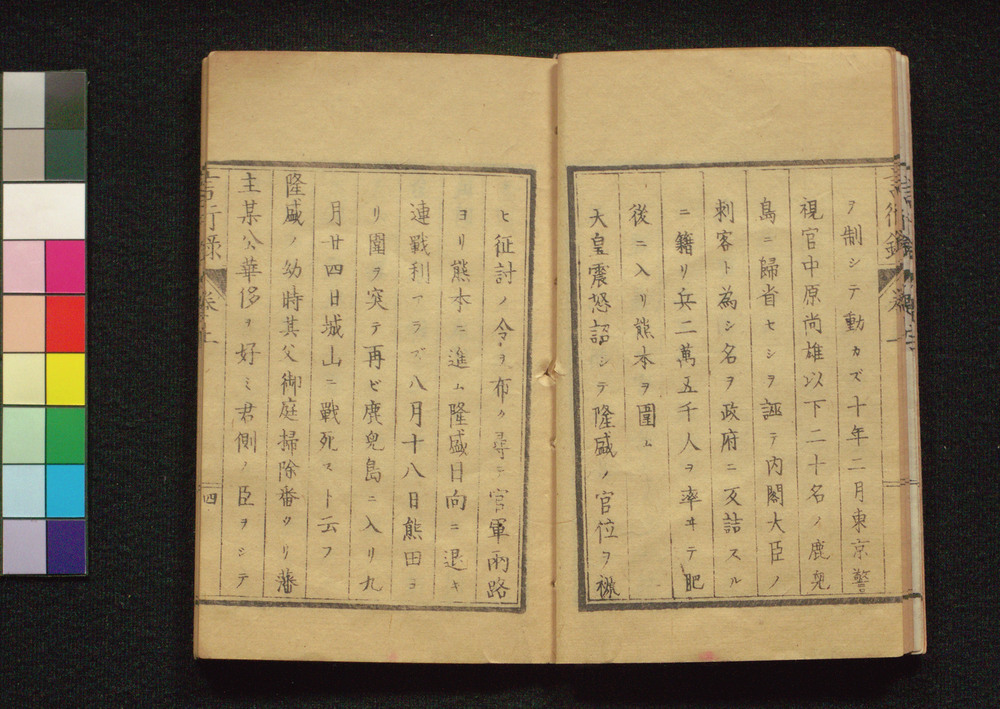 ヲ制シテ動カズ十年二月東京警
視官中原尚雄以下二十名ノ鹿兒
島ニ歸省セシヲ誣テ内閣大臣ノ
刺客ト為シ名ヲ政府ニ反詰スル
ニ籍リ兵二萬五千人ヲ率ヰテ肥
後ニ入リ熊本ヲ圍ム
天皇震怒詔シテ隆盛ノ官位ヲ褫
ヒ征討ノ令ヲ布ク尋テ官軍兩路
ヨリ熊本ニ進ム隆盛日向ニ退キ
連戰利アラズ八月十八日熊田ヨ
リ圍ヲ突テ再ビ鹿兒島ニ入リ九
月廿四日城山ニ戰死スト云フ
隆盛ノ幼時其父御庭掃除番タリ藩
主某公華侈ヲ好ミ君側ノ臣ヲシテ
言行録 卷上 四